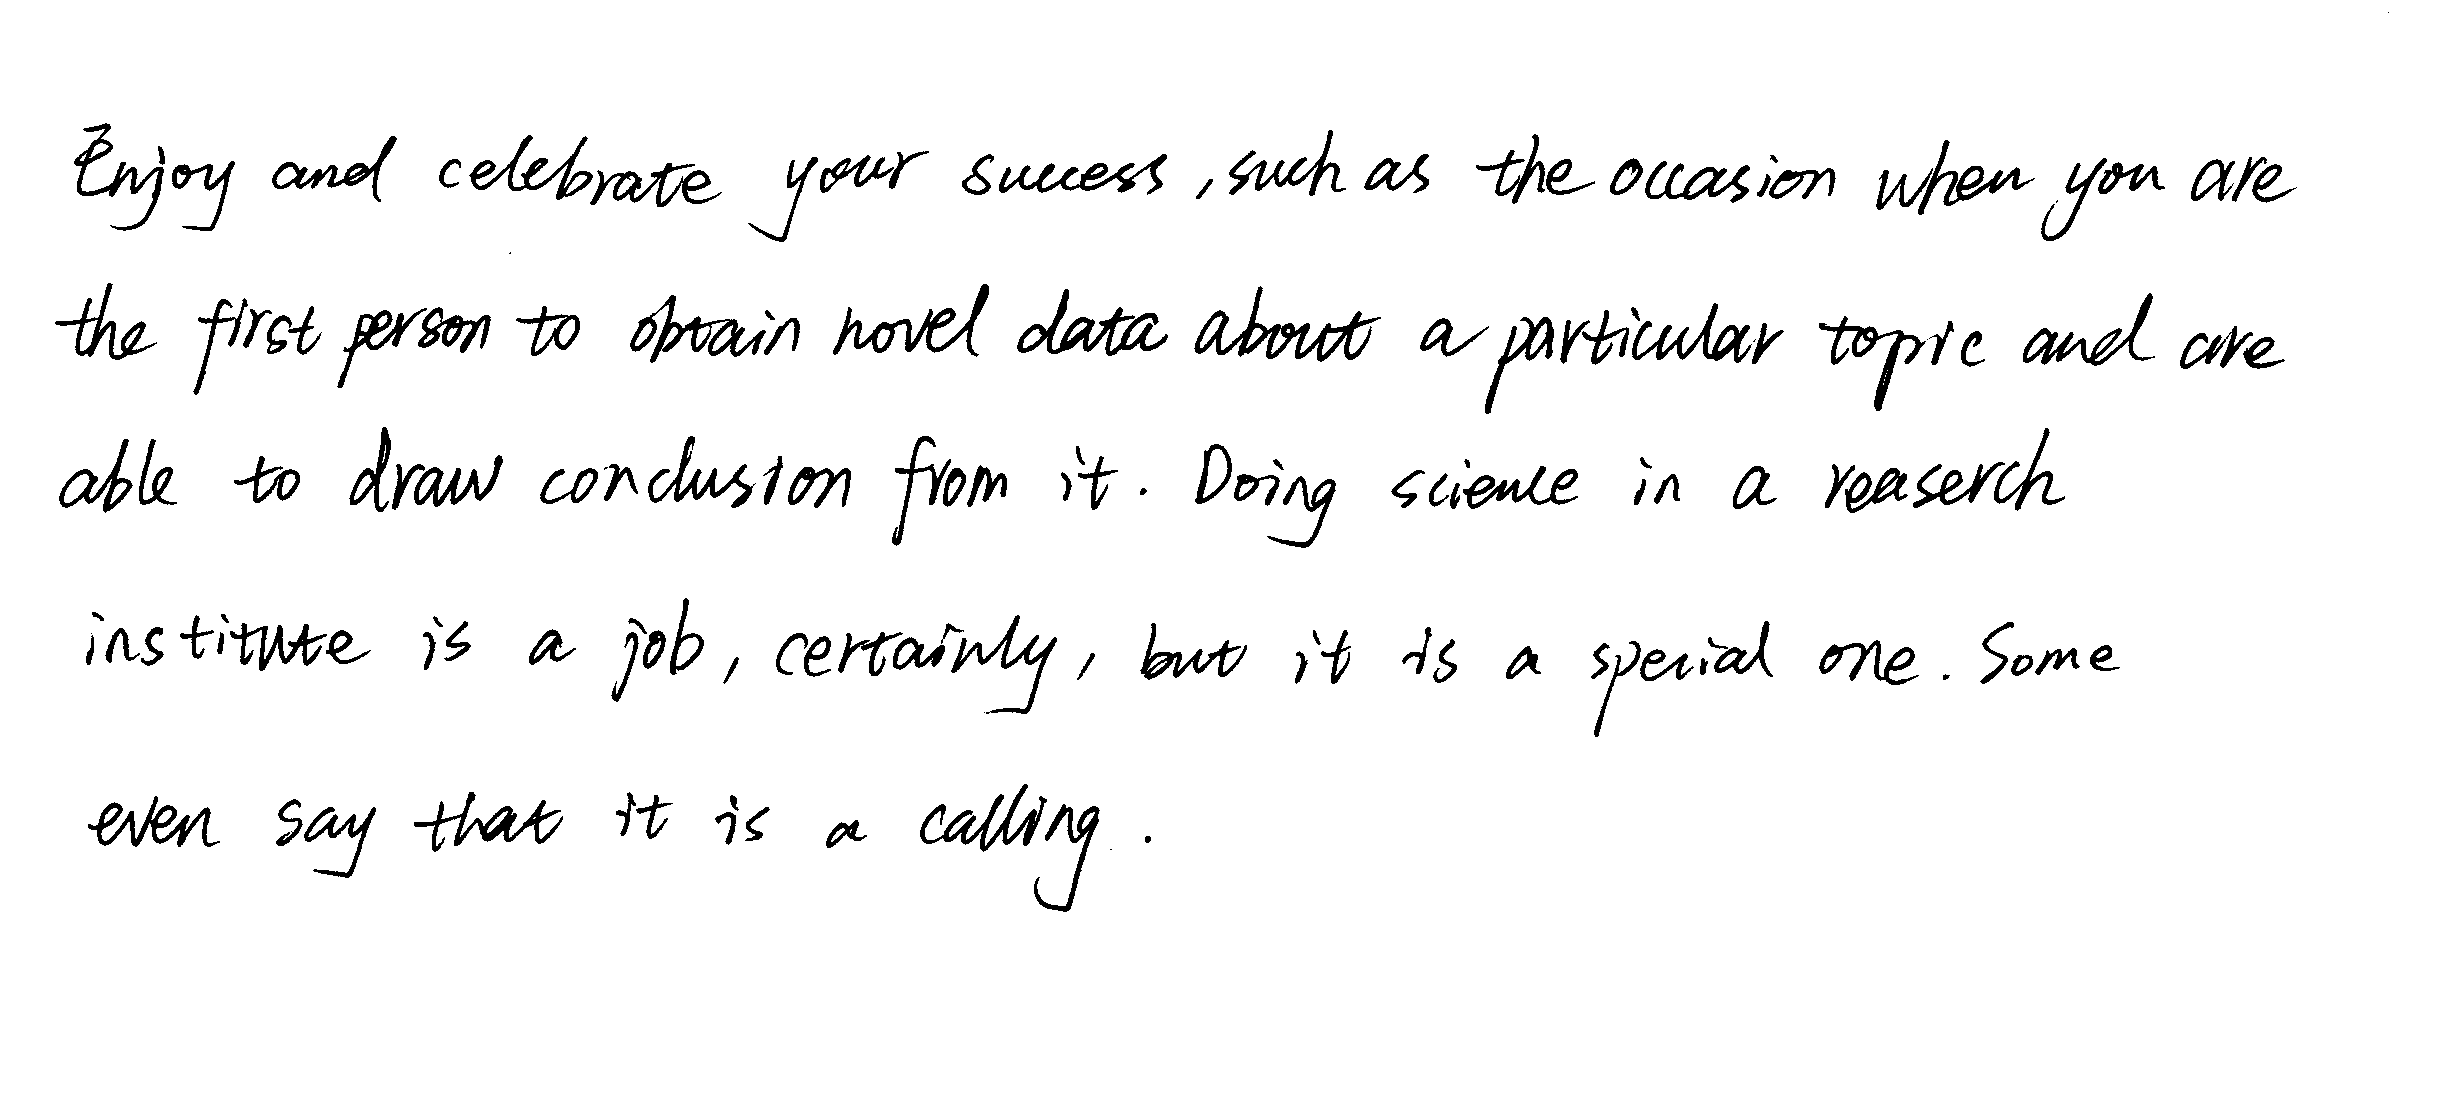 Enjoy and celebrate your success, such as the occasion when you are
the first person to obtain novel data about a particular topic and are
able to draw conclusion from it. Doing science in a reaserch
institute is a job, certainly, but it is a special one. Some
even say that it is a calling.